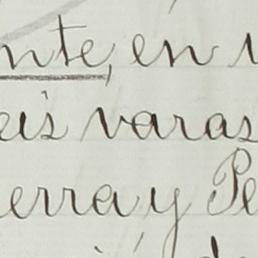 nte, en
eis varas
erra y Pe